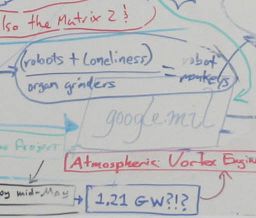 lso the Matrix 2?
(robots + loneliness) = robot
organ grinders monkeys
google.mil
Project
Atmospheric Vortex Engin
by mid-May
1.21 GW?!?